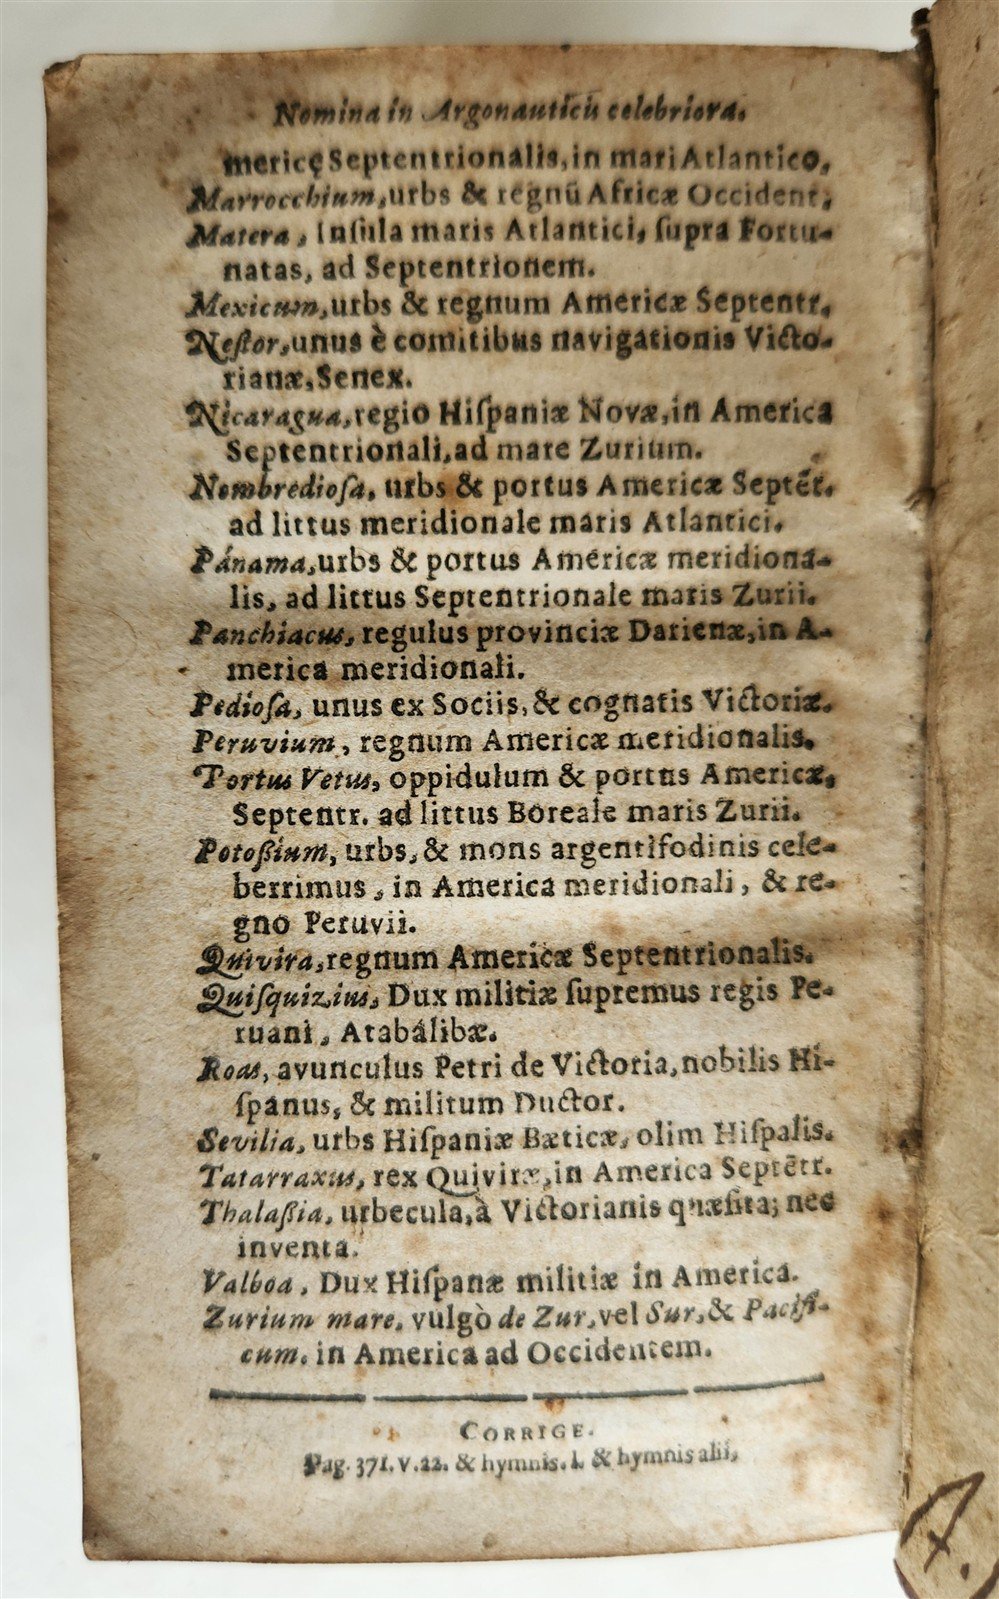 Nomina in Argonauticis celebriora.
mericę Septentrionalis, in mari Atlantico.
Marrocchium, urbs & regnũ Africæ Occident.
Matera, Inſula maris Atlantici, ſupra Fortu-
natas, ad Septentrionem.
Mexicum, urbs & regnum Americæ Septentr.
Neſtor, unus è comitibus navigationis Victo-
rianæ, Senex.
Nicaragua, regio Hiſpaniæ Novæ, in America
Septentrionali, ad mare Zurium.
Nombredioſa, urbs & portus Americæ Septẽr.
ad littus meridionale maris Atlantici.
Pánama, urbs & portus Americæ meridiona-
lis, ad littus Septentrionale maris Zurii.
Panchiacus, regulus provinciæ Darienæ, in A-
merica meridionali.
Pedioſa, unus ex Sociis, & cognatis Victoriæ.
Peruvium, regnum Americæ meridionalis.
Portus Vetus, oppidulum & portus Americæ,
Septentr. ad littus Boreale maris Zurii.
Potoßium, urbs, & mons argentifodinis cele-
berrimus, in America meridionali, & re-
gno Peruvii.
Quivira, regnum Americæ Septentrionalis.
Quiſquizius, Dux militiæ ſupremus regis Pe-
ruani, Atabálibæ.
Roas, avunculus Petri de Victoria, nobilis Hi-
ſpanus, & militum Ductor.
Sevilia, urbs Hiſpaniæ Bæticæ, olim Hiſpalis.
Tatarraxus, rex Quiviræ, in America Septẽtr.
Thalaßia, urbecula, à Victorianis quæſita; nec
inventa.
Valboa, Dux Hiſpanæ militiæ in America.
Zurium mare, vulgò de Zur, vel Sur, & Pacifi-
cum, in America ad Occidentem.
CORRIGE.
Pag. 371. v. 22. & hymnis. l. & hymnis alii,
7.